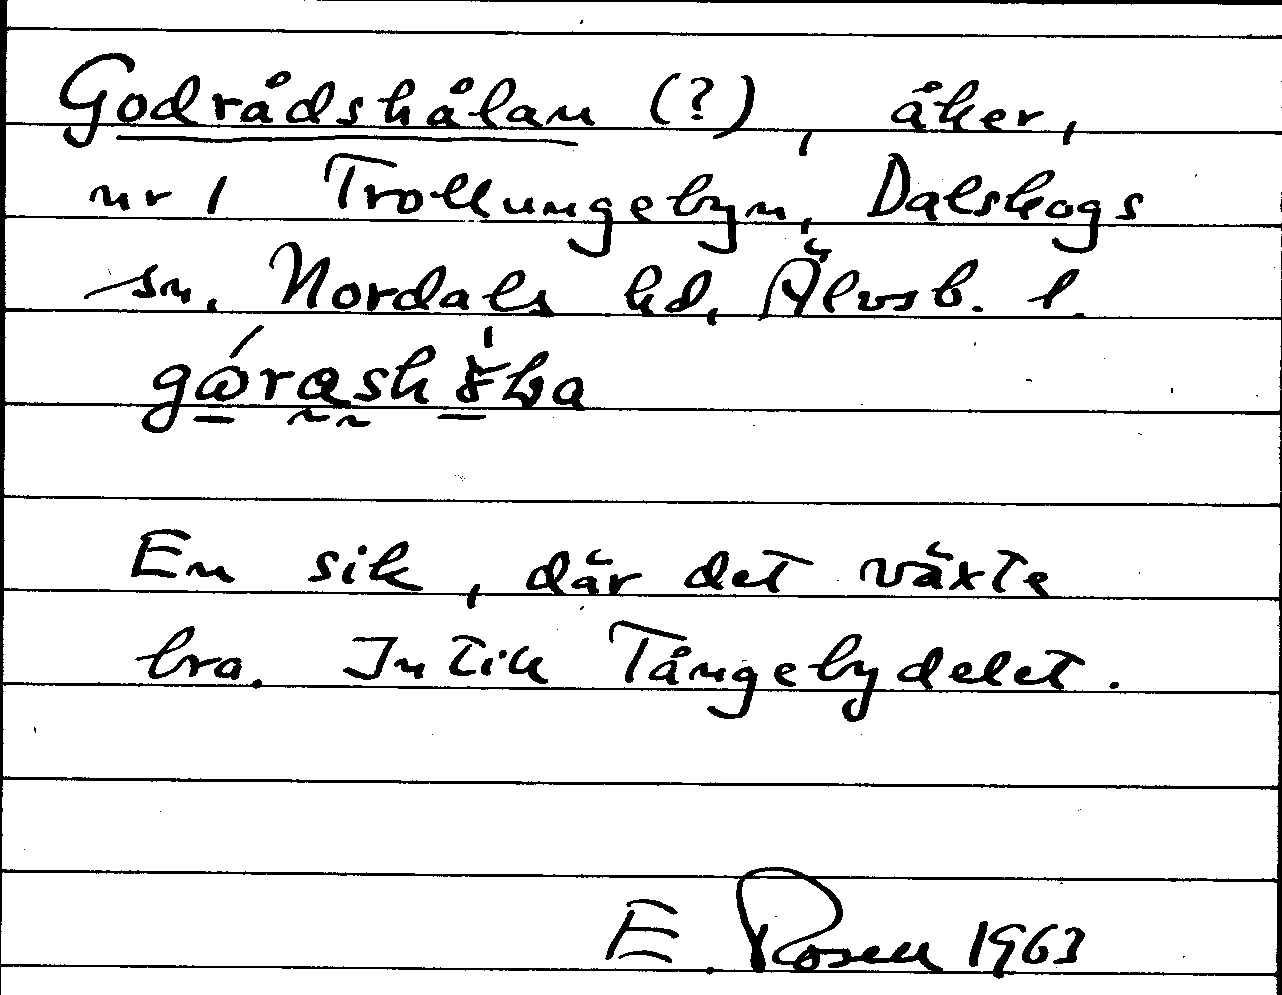 Godrådshålan (?), åker,
nr 1 Trollungebyn, Dalskogs
sn. Nordals hd, Älvsb. l.
En sik, där det växte
bra. Intill Tångebydelet.
E. Rosell 1963